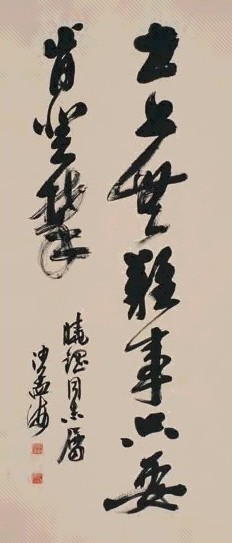 世上無難事只要
肯登攀
曉鍾同志屬
沙孟海